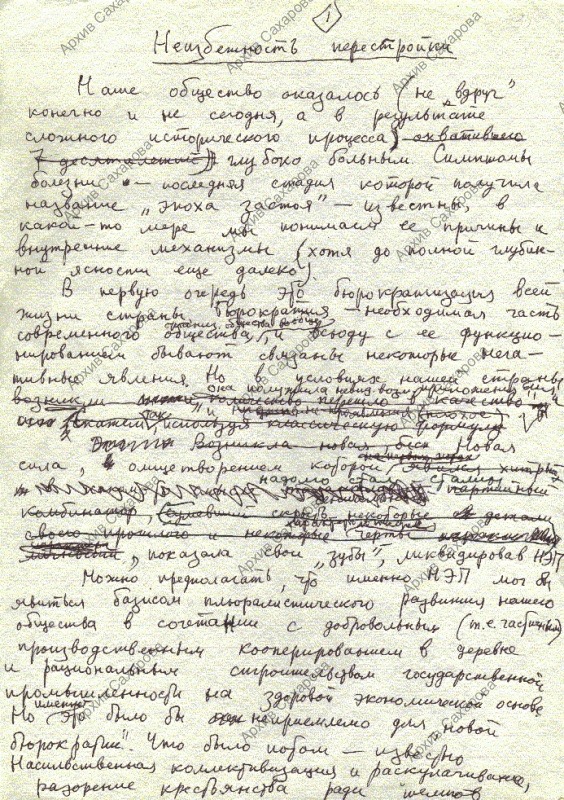 1
Неизбежность перестройки
Наше общество оказалось (не "вдруг"
конечно и не сегодня, а в результате
сложного исторического процесса) охватившего
7 десятилетий) глубоко больным. Симптомы
болезни — последняя стадия которой получила
название "эпоха застоя" — известны, в
какой-то мере мы понимаем ее причины и
внутренние механизмы (хотя до полной глубин-
ной ясности еще далеко)
В первую очередь это бюрократизация всей
жизни страны. Бюрократия — необходимая часть
современного общества, и всюду с ее функцио-
нированием бывают связаны некоторые нега-
тивные явления. Но в условиях нашей страны
возникли количество перешло в качество
скажем, используя классическую формулу
Возникла новая Новая
сила, олицетворением которой явился хитрый
надолго стал Сталин
партийный
комбинатор, сумевший скрыть некоторые детали
своего прошлого и некоторые черты
показала свои "зубы", ликвидировав НЭП
Можно предполагать, что именно НЭП мог бы
явиться базисом плюралистического развития нашего
общества в сочетании с добровольным (т.е. частичным)
производственным кооперированием в деревне
и рациональным строительством государственной
промышленности на здоровой экономической основе
Но именно это было бы неприемлемо для "новой
бюрократии". Что было потом — известно
Насильственная коллективизация и раскулачивание,
разорение крестьянства ради